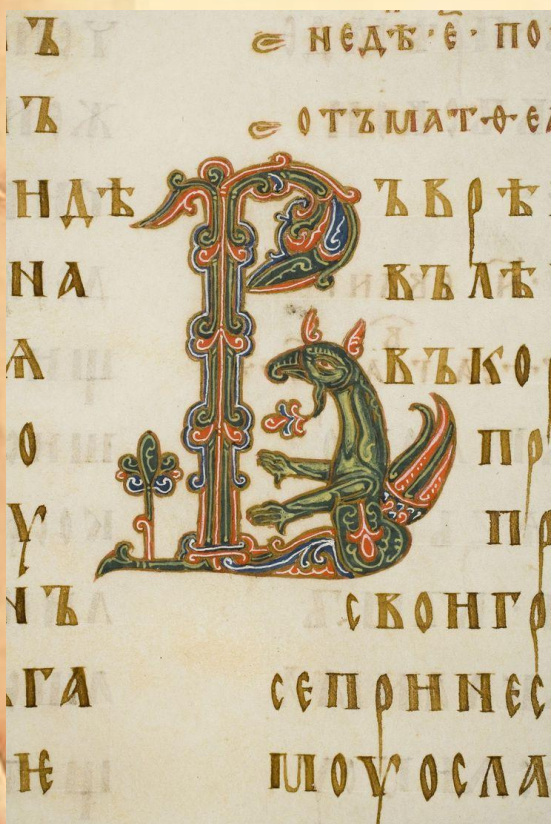 Ъ
Ъ
ИДѢ
НА
Ѧ
О
Ѵ
НЪ
ГА
Ѥ
НЕДѢ·Е҃·ПО
ОТЪМАТѲЕА
ВЪВРѢ
ВЪЛѢ
ВЪКОР
ПР
ПР
СВОИГР
СЕПРИНЕС
МОѴОСЛА